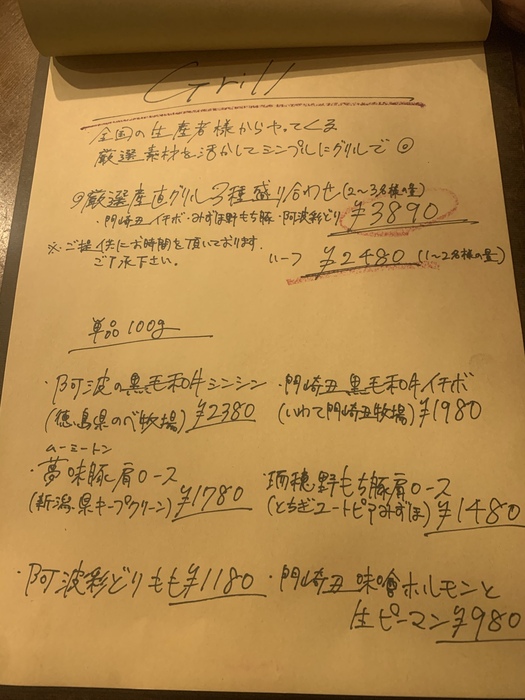 Grill
全国の生産者様からやってくる
厳選素材を活かしてシンプルにグリルで◎
◎厳選産直グリル3種盛り合わせ(2〜3名様の量)
・門崎丑イチボ・みずほ野もち豚・阿波彩どり ¥3890
※ご提供にお時間を頂いております。
ご了承下さい。
ハーフ ¥2480 (1〜2名様の量)
単品100g
・阿波の黒毛和牛シンシン
(徳島県のべ牧場) ¥2380
・門崎丑黒毛和牛イチボ
(いわて門崎丑牧場) ¥1980
ムーミートン
・夢味豚肩ロース
(新潟県キープクリーン) ¥1780
・瑞穂野もち豚肩ロース
(とちぎユートピアみずほ) ¥1480
・阿波彩どりもも ¥1180
・門崎丑味噌ホルモンと
生ピーマン ¥980